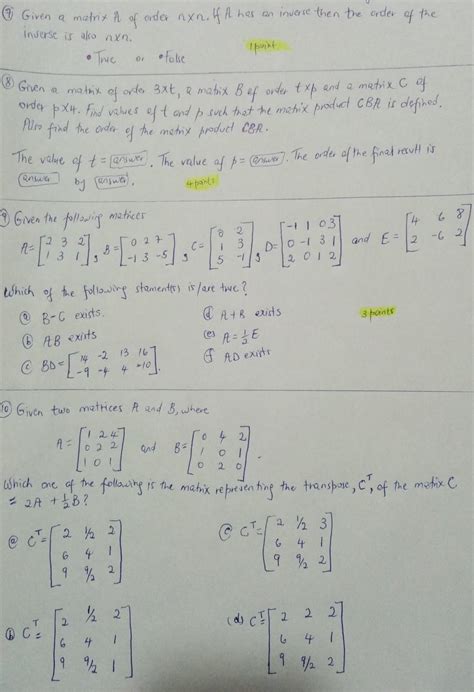 ⑦ Given a matrix A of order n×n. If A has an inverse then the order of the
inverse is also n×n.
• True or • False
1 point
⑧ Given a matrix of order 3×t, a matrix B of order t×p and a matrix C of
order p×4. Find values of t and p such that the matrix product CBA is defined.
Also find the order of the matrix product CBA.
The value of t = (answer). The value of p = (answer). The order of the final result is
(answer) by (answer).
4 points
⑨ Given the following matrices
A = [2 3 2; 1 3 1], B = [0 2 7; -1 3 -5], C = [0 2; 1 3; 5 -1], D = [-1 1 0 3; 0 -1 3 1; 2 0 1 2] and E = [4 6 8; 2 -6 2]
Which of the following stament(s) is/are true?
ⓐ B-C exists. ⓓ A+B exists
3 points
ⓑ AB exists (e) A = 1/2 E
ⓒ BD = [14 -2 13 16; -9 -4 4 -10]. ⓕ AD exists
⑩ Given two matrices A and B, where
A = [1 2 4; 0 2 2; 1 0 1] and B = [0 4 2; 1 0 1; 0 2 0].
Which one of the following is the matrix representing the transpose, Cᵀ, of the matrix C
= 2A + 1/2 B?
ⓐ Cᵀ = [2 1/2 2; 6 4 1; 9 9/2 2] ⓒ Cᵀ = [2 1/2 3; 6 4 1; 9 9/2 2]
ⓑ Cᵀ = [2 1/2 2; 6 4 1; 9 9/2 1] (d) Cᵀ = [2 2 2; 6 4 1; 9 9/2 2]